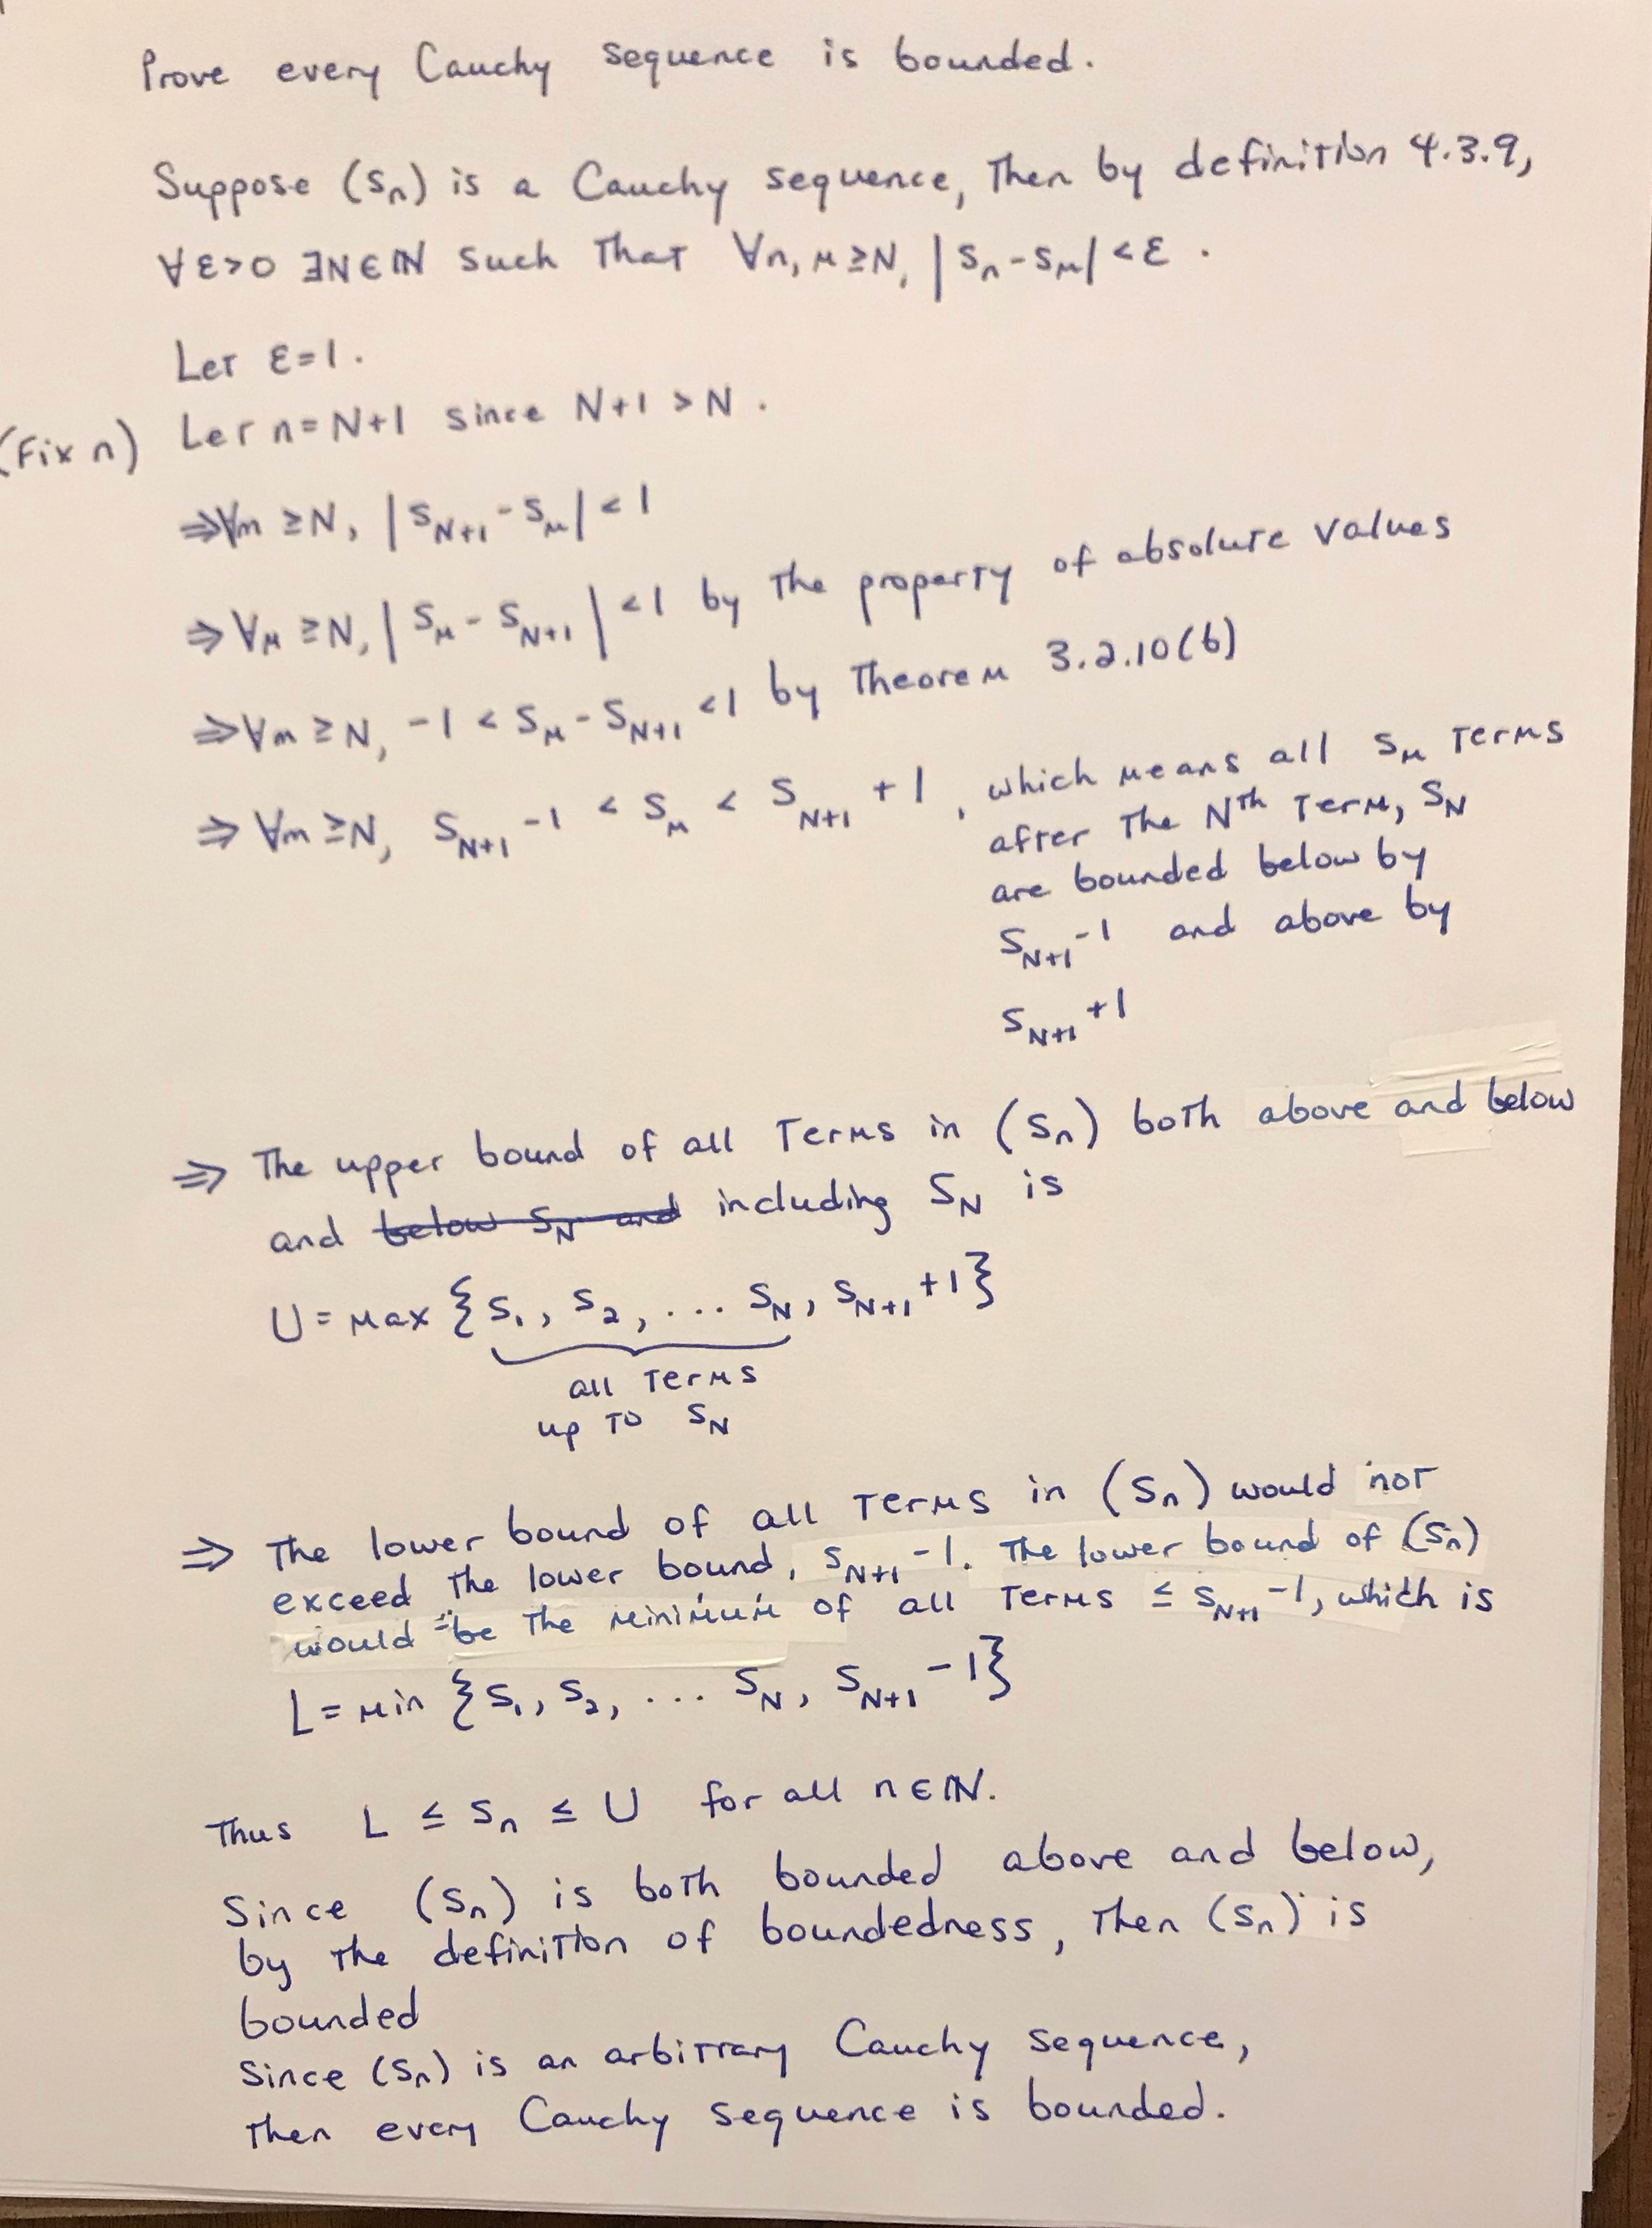 Prove every Cauchy sequence is bounded.
Suppose (Sₙ) is a Cauchy sequence, Then by definition 4.3.9,
∀ε>0 ∃N∈ℕ such that ∀n, m ≥N, |Sₙ-Sₘ| <ε.
Let ε=1.
(Fix n) Let n=N+1 since N+1 >N.
⇒∀m ≥N, |S_{N+1} - Sₘ| < 1
⇒∀m ≥N, |Sₘ - S_{N+1}| <1 by the property of absolute values
⇒∀m ≥N, -1 < Sₘ - S_{N+1} <1 by Theorem 3.2.10(b)
⇒ ∀m ≥N, S_{N+1} -1 < Sₘ < S_{N+1} +1, which means all Sₘ terms
after the Nᵗʰ term, S_N
are bounded below by
S_{N+1} -1 and above by
S_{N+1} +1
⇒ The upper bound of all terms in (Sₙ) both above and below
and below S_N and including S_N is
U = max {S₁, S₂, ... S_N, S_{N+1} +1}
all terms
up to S_N
⇒ The lower bound of all terms in (Sₙ) would not
exceed the lower bound, S_{N+1} -1. The lower bound of (Sₙ)
would be the minimum of all terms ≤ S_{N+1} -1, which is
L = min {S₁, S₂, ... S_N, S_{N+1} -1}
Thus L ≤ Sₙ ≤ U for all n∈ℕ.
Since (Sₙ) is both bounded above and below,
by the definition of boundedness, then (Sₙ) is
bounded
Since (Sₙ) is an arbitrary Cauchy sequence,
then every Cauchy sequence is bounded.